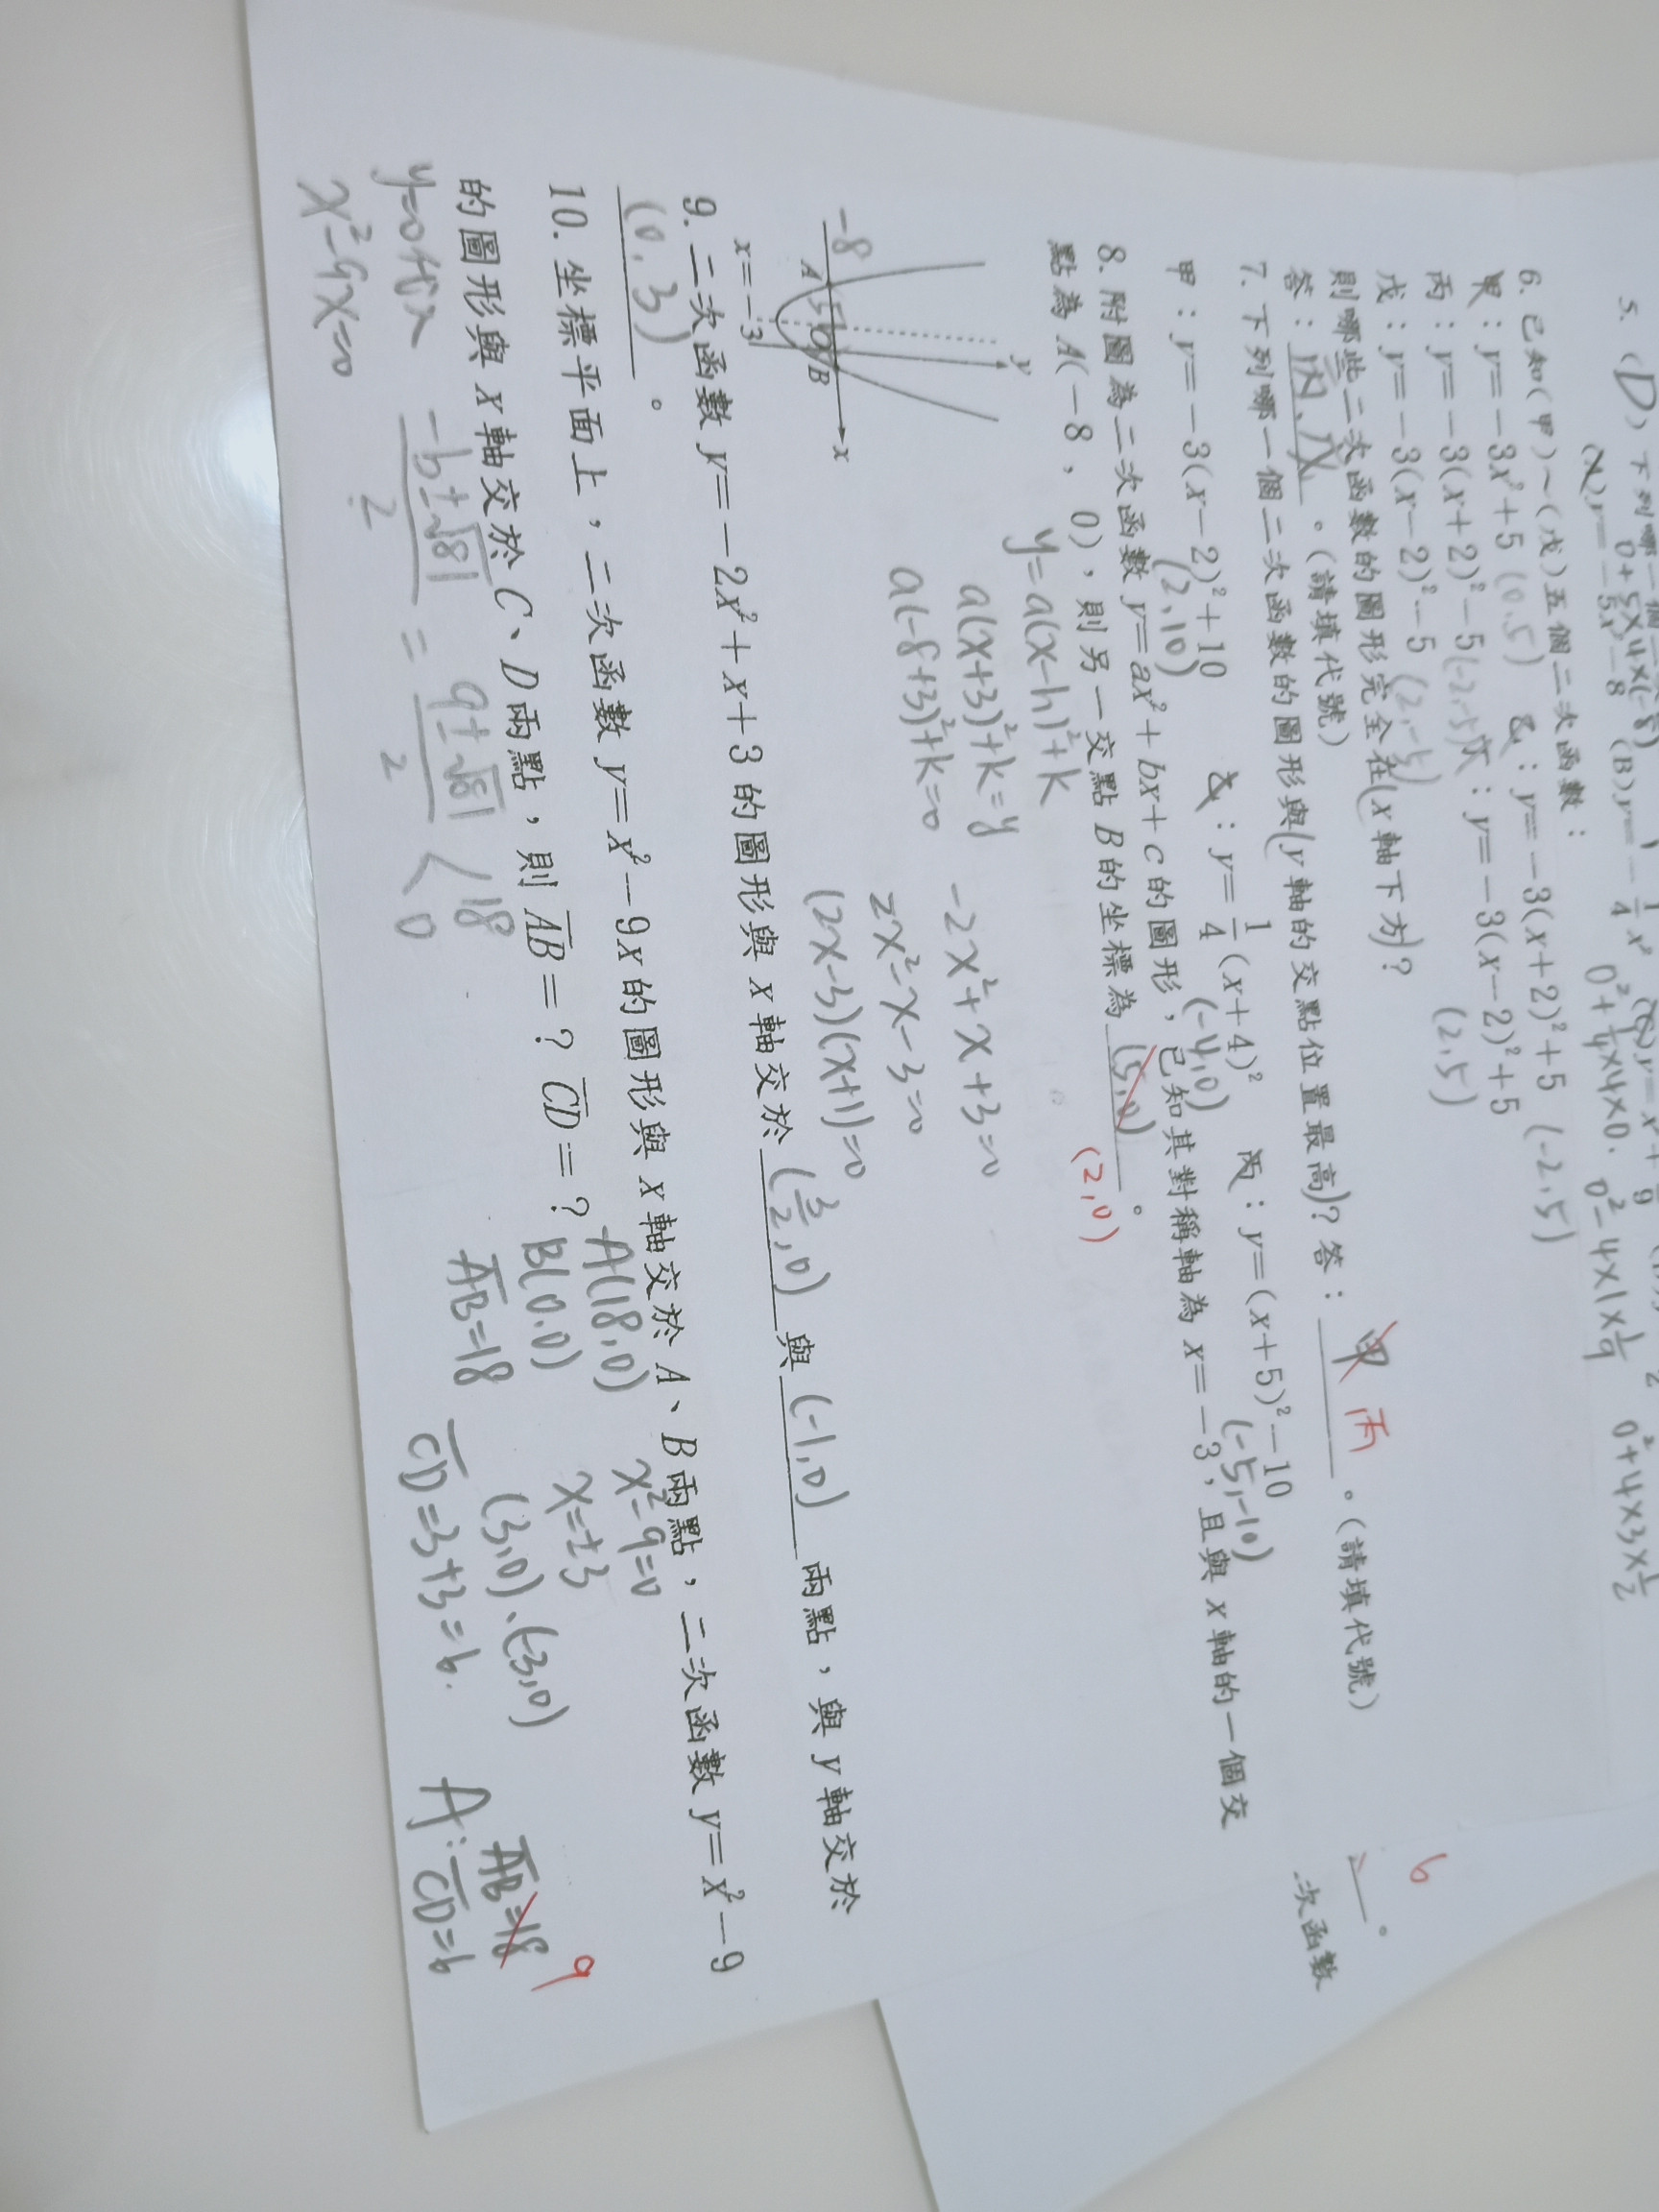 5. (D) 下列哪一個
0+5×4×(-8)
0²+¼×4×0.
0²-4×1×1/9
0²+4×3×½
6. 已知(甲)~(戊)五個二次函數：
甲：y=-3x²+5 (0,5) 乙：y=-3(x+2)²+5 (-2,5)
丙：y=-3(x+2)²-5 (-2,-5) 丁：y=-3(x-2)²+5
(2,5)
戊：y=-3(x-2)²-5 (2,-5)
則哪些二次函數的圖形完全在(x軸下方)？
答：丙、戊。(請填代號)
7. 下列哪一個二次函數的圖形與(y軸的交點位置最高)？答：甲 丙 。(請填代號)
甲：y=-3(x-2)²+10 乙：y=1/4(x+4)² 丙：y=(x+5)²-10
(2,10) (-4,0) (-5,-10)
8. 附圖為二次函數 y=ax²+bx+c 的圖形，已知其對稱軸為 x=-3，且與 x 軸的一個交
點為 A(-8，0)，則另一交點 B 的坐標為 (5,0) 。
(2,0)
y=a(x-h)²+k
a(x+3)²+k=y
a(-8+3)²+k=0
-2x²+x+3=0
2x²-x-3=0
(2x-3)(x+1)=0
y
-8
A
B
x
x=-3
9. 二次函數 y=-2x²+x+3 的圖形與 x 軸交於 (3/2,0) 與 (-1,0) 兩點，與 y 軸交於
(0,3) 。
10. 坐標平面上，二次函數 y=x²-9x 的圖形與 x 軸交於 A、B 兩點，二次函數 y=x²-9
的圖形與 x 軸交於 C、D 兩點，則 AB=？CD=？
A(18,0)
B(0,0)
AB=18
x²-9=0
x=±3
(3,0)、(-3,0)
CD=3+3=6.
y=0代入
x²-9x=0
-b±√81/2 = 9±√81/2 < 18
0
A: AB=18 9
CD=6
6
次函數